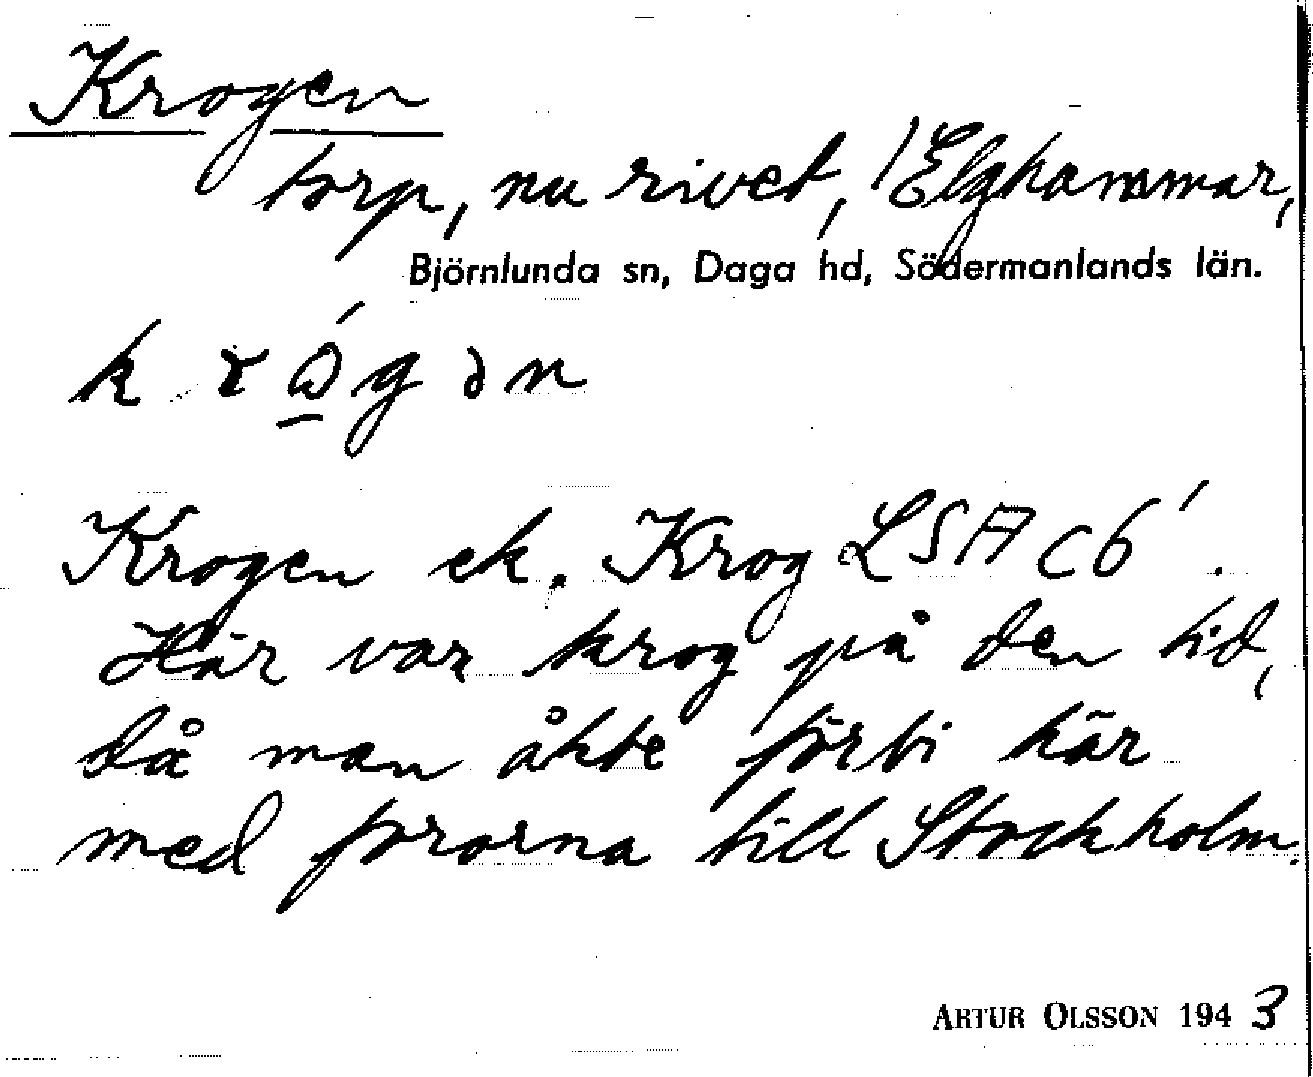 Krogen
torp, nu rivet, / Elghammar,
Björnlunda sn, Daga hd, Södermanlands län.
Krogen ek. Krog LSA C6'.
Här var krog på den tid,
då man åkte förbi här
med fororna till Stockholm.
ARTUR OLSSON 1943